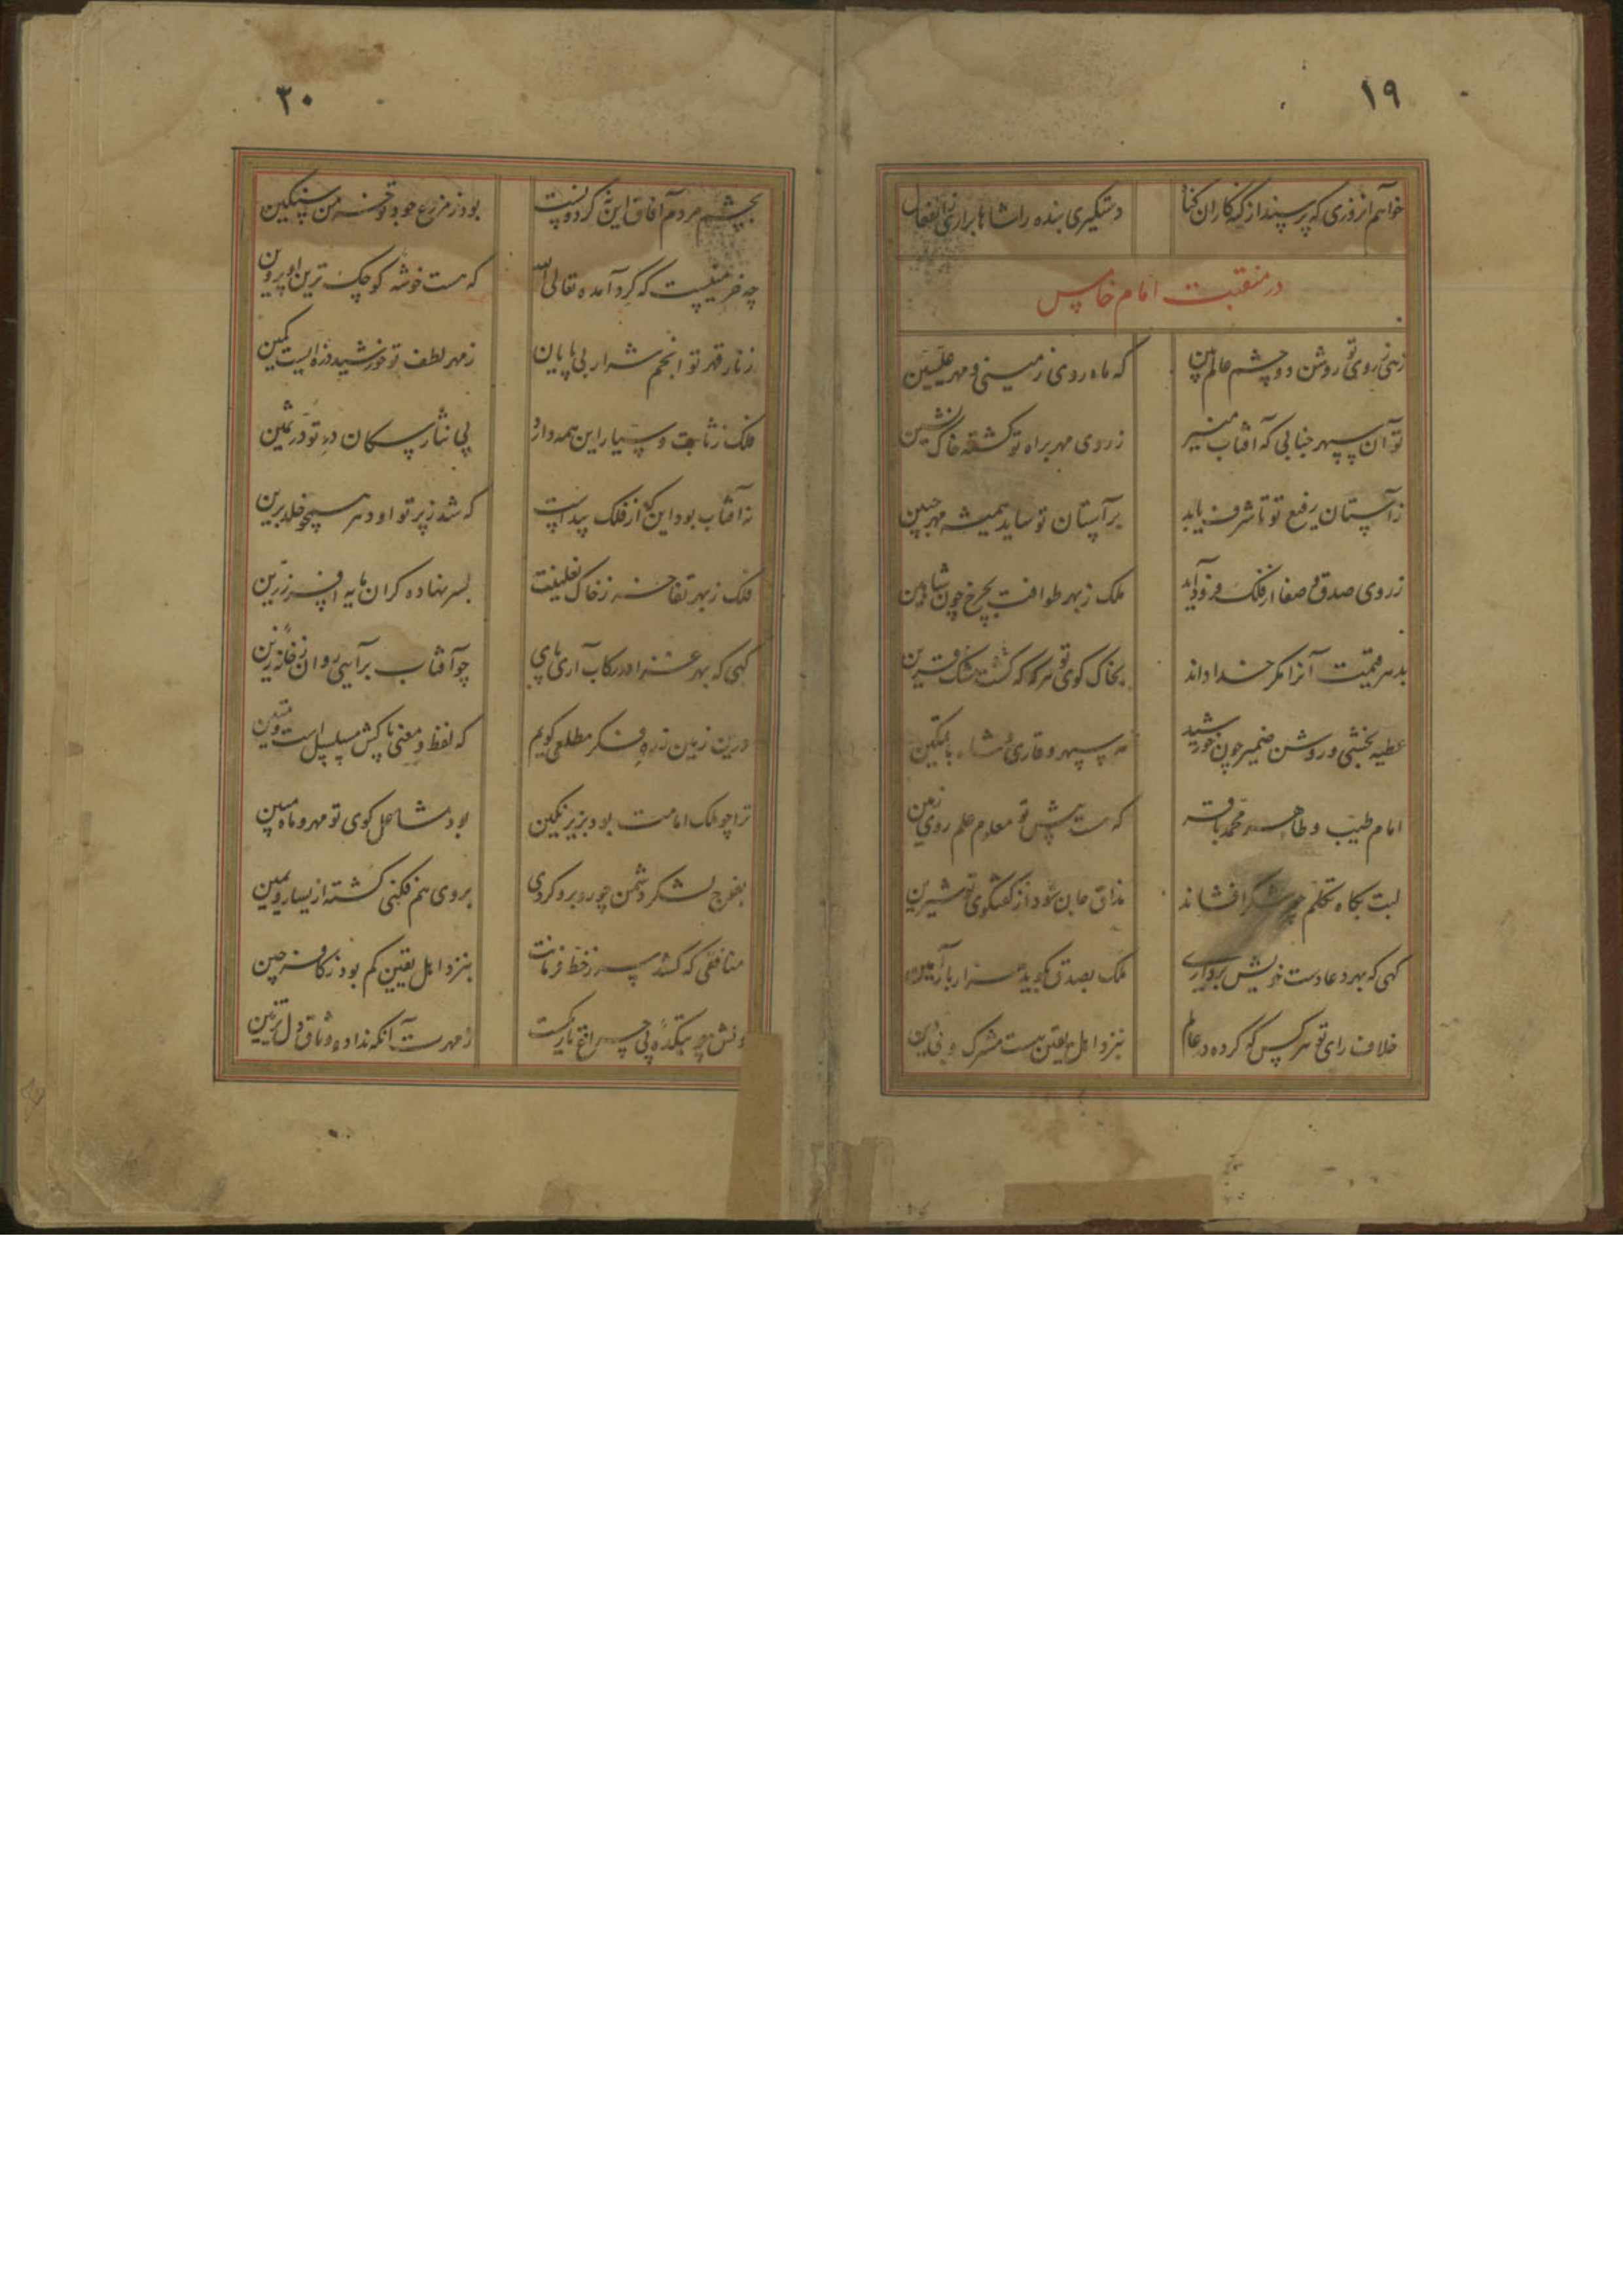 ۱۹
خواهم از روزی که پرسند از گنه کاران گناه
دستگیری بنده را شاها برآری ز انفعال
در منقبت امام خامس
زهی ز روی تو روشن دو چشم عالم بین
که ماه روی زمینی و مهر علیین
تو آن سپهر جنابی که آفتاب منیر
ز روی مهر براه تو گشته خاک نشین
ز آستان رفیع تو تا شرف یابد
بر آستان تو ساید همیشه مهر جبین
ز روی صدق و صفا از فلک فرود آید
ملک ز بهر طوافت بچرخ چون شاهین
بدهر قیمت آنرا مگر خدا داند
بخاک کوی تو هر کو که گشت قرین
عطیه بخشی و روشن ضمیر چون خورشید
سپهر وقاری شاه با تمکین
امام طیب و طاهر محمد باقر
که هست پیش تو معلوم علم روی زمین
لبت بگاه تکلم چو شکر افشاند
مذاق جان شود از گفتگوی تو شیرین
گهی که بهر دعا دست خویش برداری
ملک بصدق بگوید هزار بار آمین
خلاف رای تو هر کس که کرده در عالم
بنزد اهل یقین هست مشرک و بی دین
۲۰
بچشم مردم آفاق این نه گردونست
بود ز مزرع جود تو خرمن سنگین
چه خرمنیست که گرد آمده تعالی الله
که هست خوشه کوچک ترین او پروین
ز نار قهر تو انجم شرار بی پایان
ز مهر لطف تو خورشید ذره ایست کمین
فلک ز ثابت و سیار این همه دارد
پی نثار سگان در تو در ثمین
نه آفتاب بود این که از فلک پیداست
که شد ز پرتو او دهر همچو خلد برین
فلک ز بهر تفاخر ز خاک نعلینت
بسر نهاده گران مایه افسر زرین
گهی که بهر غزا در رکاب آری پای
چو آفتاب برآیی روان ز خانه زین
درین زمین ز ره فکر مطلعی گویم
که لفظ و معنی پاکش مسلسل است و متین
ترا چو ملک امامت بود بزیر نگین
بود مشاعل کوی تو مهر و ماه مبین
بفوج لشکر دشمن چو روبرو گردی
بروی هم فکنی کشته از یسار و یمین
منافقی که کشد سر ز خط فرمانت
بنزد اهل یقین کم بود ز کافر چین
دلش چو بتکده بی چراغ تاریکست
ز مهرت آنکه نداده وثاق دل تزیین